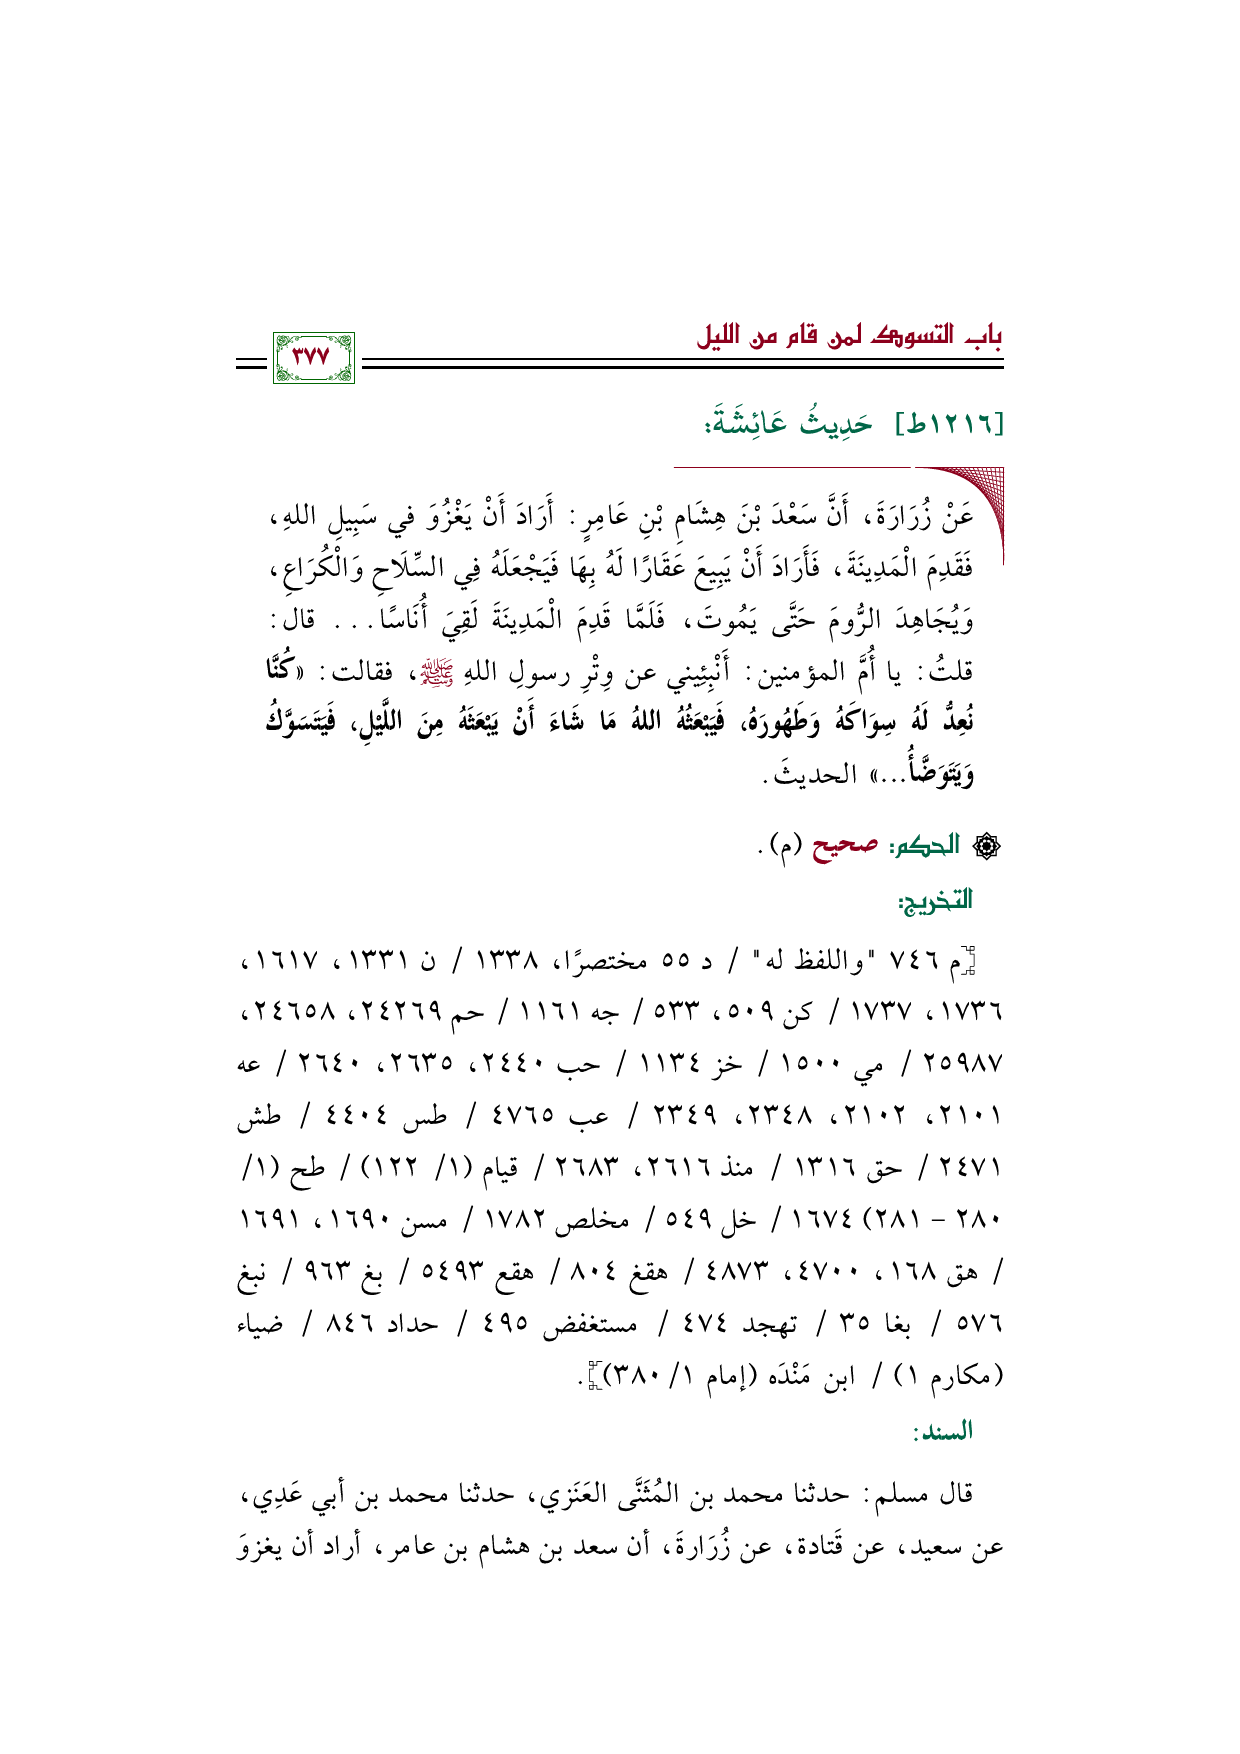 باب التسوك لمن قام من الليل
٣٧٧
[١٢١٦ط] حَدِيثُ عَائِشَةَ:
عَنْ زُرَارَةَ، أَنَّ سَعْدَ بْنَ هِشَامِ بْنِ عَامِرٍ: أَرَادَ أَنْ يَغْزُوَ في سَبِيلِ اللهِ،
فَقَدِمَ الْمَدِينَةَ، فَأَرَادَ أَنْ يَبِيعَ عَقَارًا لَهُ بِهَا فَيَجْعَلَهُ فِي السِّلَاحِ وَالْكُرَاعِ،
وَيُجَاهِدَ الرُّومَ حَتَّى يَمُوتَ، فَلَمَّا قَدِمَ الْمَدِينَةَ لَقِيَ أُنَاسًا... قال:
قلتُ: يا أُمَّ المؤمنين: أَنْبِئِيني عن وِتْرِ رسولِ اللهِ ﷺ، فقالت: «كُنَّا
نُعِدُّ لَهُ سِوَاكَهُ وَطَهُورَهُ، فَيَبْعَثُهُ اللهُ مَا شَاءَ أَنْ يَبْعَثَهُ مِنَ اللَّيْلِ، فَيَتَسَوَّكُ
وَيَتَوَضَّأُ...» الحديثَ.
الحكم: صحيح (م).
التخريج:
[م ٧٤٦ "واللفظ له" / د ٥٥ مختصرًا، ١٣٣٨ / ن ١٣٣١، ١٦١٧،
١٧٣٦، ١٧٣٧ / كن ٥٠٩، ٥٣٣ / جه ١١٦١ / حم ٢٤٢٦٩، ٢٤٦٥٨،
٢٥٩٨٧ / مي ١٥٠٠ / خز ١١٣٤ / حب ٢٤٤٠، ٢٦٣٥، ٢٦٤٠ / عه
٢١٠١، ٢١٠٢، ٢٣٤٨، ٢٣٤٩ / عب ٤٧٦٥ / طس ٤٤٠٤ / طش
٢٤٧١ / حق ١٣١٦ / منذ ٢٦١٦، ٢٦٨٣ / قيام (١/ ١٢٢) / طح (١/
٢٨٠ – ٢٨١) ١٦٧٤ / خل ٥٤٩ / مخلص ١٧٨٢ / مسن ١٦٩٠، ١٦٩١
/ هق ١٦٨، ٤٧٠٠، ٤٨٧٣ / هقغ ٨٠٤ / هقع ٥٤٩٣ / بغ ٩٦٣ / نبغ
٥٧٦ / بغا ٣٥ / تهجد ٤٧٤ / مستغفض ٤٩٥ / حداد ٨٤٦ / ضياء
(مكارم ١) / ابن مَنْدَه (إمام ١/ ٣٨٠)].
السند:
قال مسلم: حدثنا محمد بن المُثَنَّى العَنَزي، حدثنا محمد بن أبي عَدِي،
عن سعيد، عن قَتادة، عن زُرَارةَ، أن سعد بن هشام بن عامر، أراد أن يغزوَ